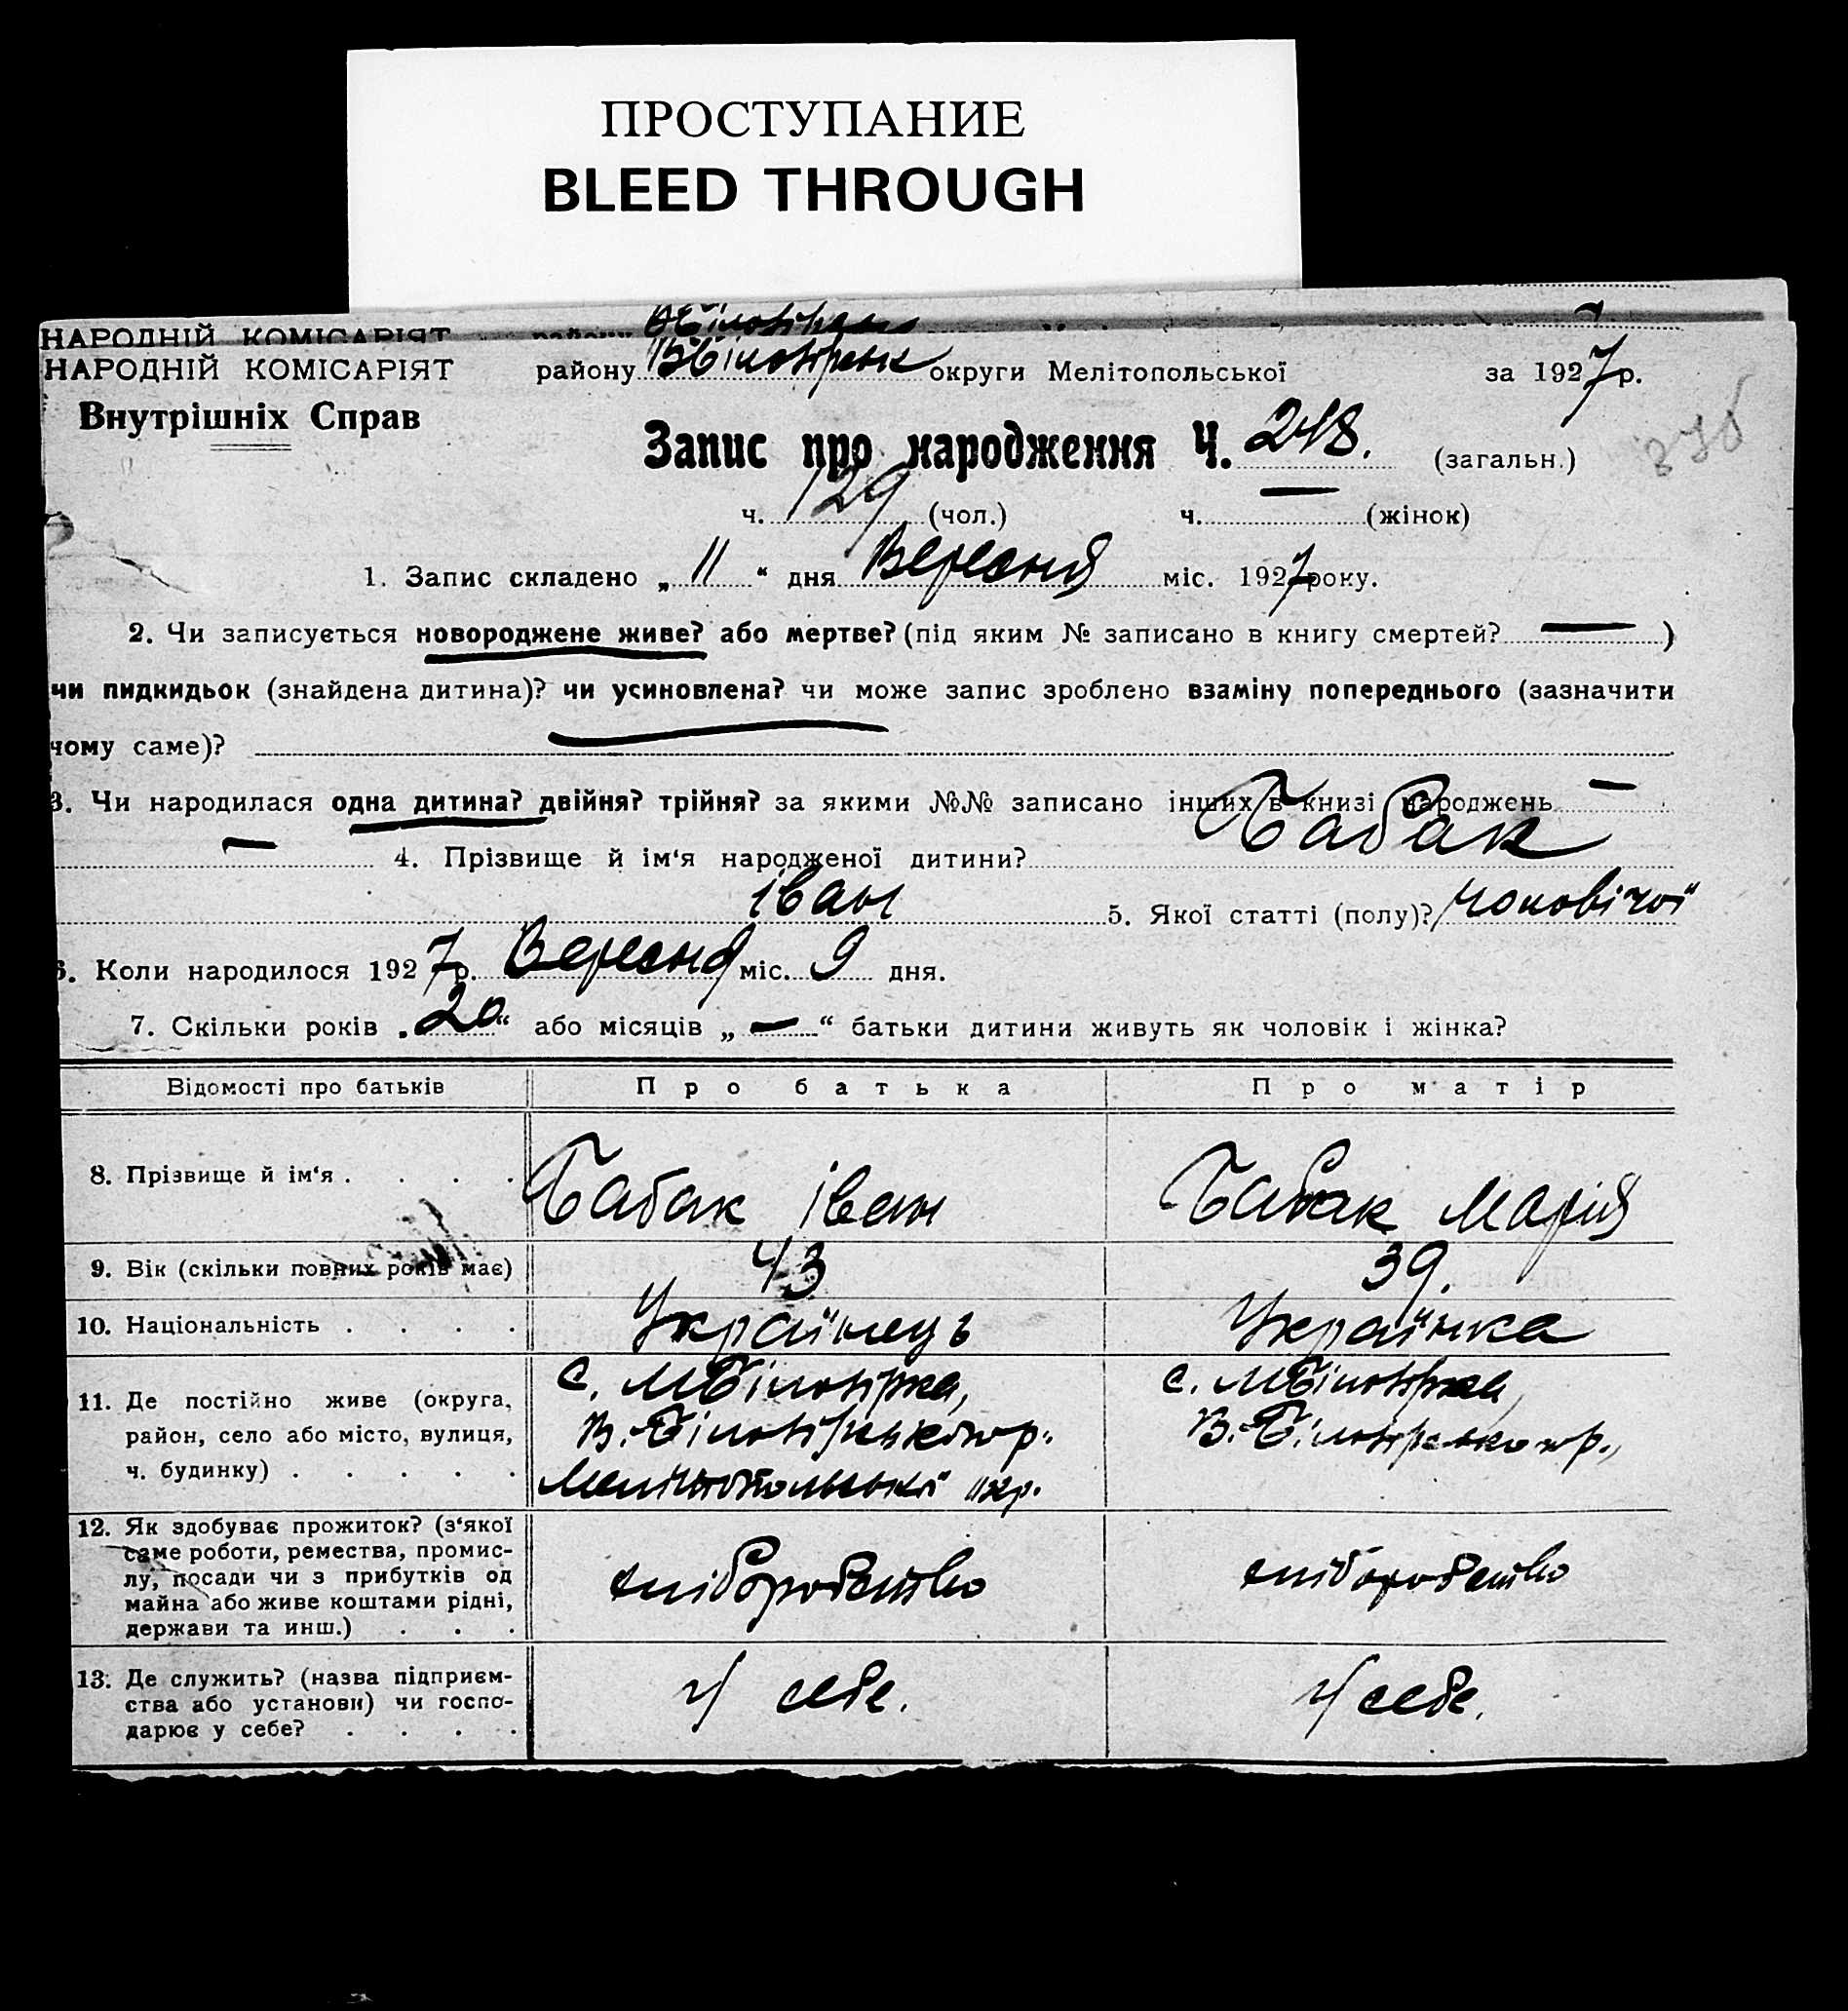 ПРОСТУПАНИЕ
BLEED THROUGH
НАРОДНІЙ КОМІСАРІЯТ
НАРОДНІЙ КОМІСАРІЯТ району В.Білозірськ округи Мелітопольської за 1927 р.
Внутрішніх Справ
Запис про народження Ч. 248. (загальн.)
ч. 129 (чол.) ч. — (жінок)
1. Запис складено „ 11 “ дня Вересня міс. 1927 року.
2. Чи записується новороджене живе? або мертве? (під яким № записано в книгу смертей? — )
чи пидкидьок (знайдена дитина)? чи усиновлена? чи може запис зроблено взаміну попереднього (зазначити
чому саме)?
3. Чи народилася одна дитина? двійня? трійня? за якими №№ записано інших в книзі народжень —
— 4. Прізвище й ім‘я народженої дитини? Бабак
іван 5. Якої статті (полу)? чоловічої
6. Коли народилося 1927 р. Вересня міс. 9 дня.
7. Скільки років „ 20 “ або місяців „ — “ батьки дитини живуть як чоловік і жінка?
Відомості про батьків Про батька Про матір
8. Прізвище й ім‘я . . . . Бабак іван Бабак Марія
9. Вік (скільки повних років має) 43 39.
10. Національність . . . . Українець Українка
11. Де постійно живе (округа, с. МБілозірка, с. МБілозірка,
район, село або місто, вулиця, В.-Білозірського р. В.-Білозірського р.,
ч. будинку) . . . . . Мелітопольської окр.
12. Як здобуває прожиток? (з‘якої
саме роботи, ремества, промис-
лу, посади чи з прибутків од хліборобство хліборобство
майна або живе коштами рідні,
держави та инш.) . . .
13. Де служить? (назва підприєм-
ства або установи) чи госпо- у себе. у себе.
дарює у себе? . . . .